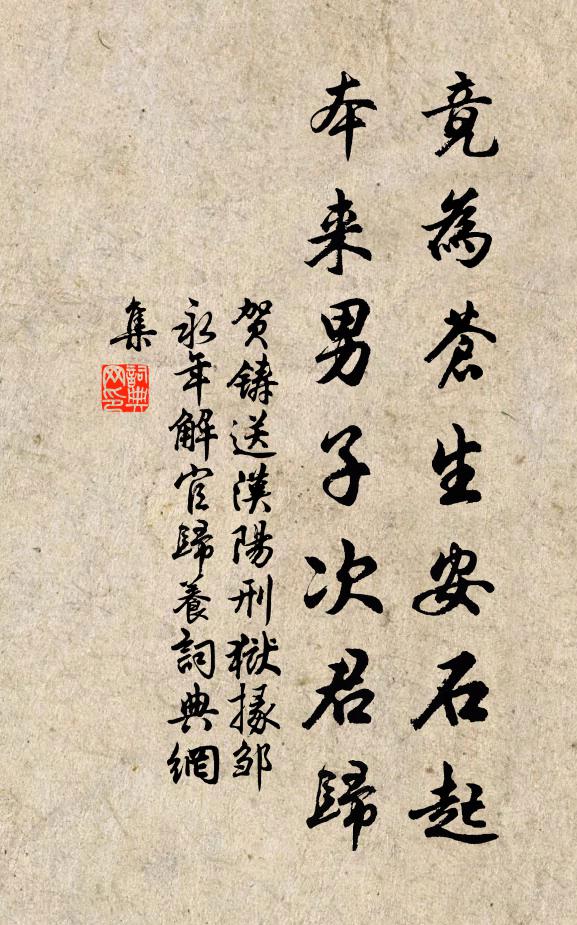 竟為蒼生安石起
本来男子次君歸
贺鑄送漢陽刑獄掾邹
永年解官歸養詞典網
集
詞典
网印